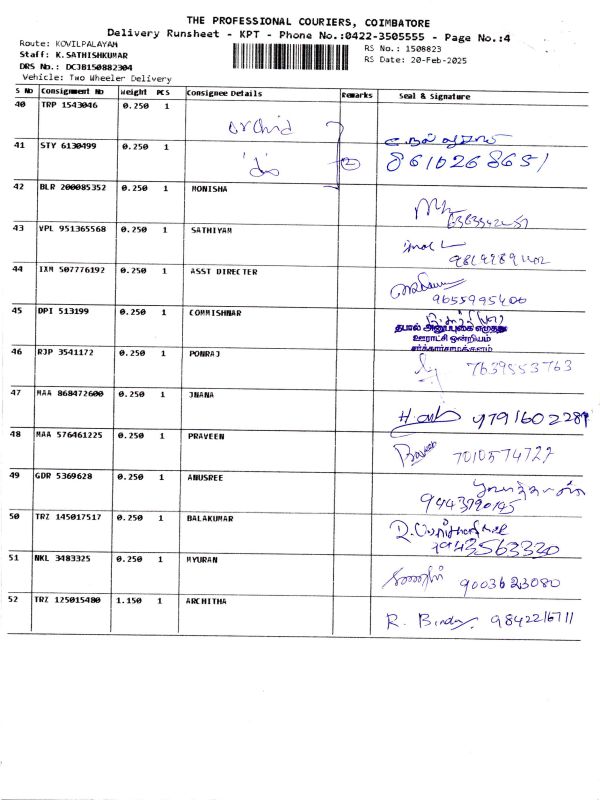 THE PROFESSIONAL COURIERS, COIMBATORE
Delivery Runsheet - KPT - Phone No.:0422-3505555 - Page No.:4
Route: KOVILPALAYAM
RS No.: 1508823
Staff: K.SATHISHKUMAR
RS Date: 20-Feb-2025
DRS No.: DCJB150882304
Vehicle: Two Wheeler Delivery
S No Consignment No Weight PCS Consignee Details Remarks Seal & Signature
40 TRP 1543046 0.250 1 orchid
41 STY 6130499 0.250 1 2 8610268651
42 BLR 200085352 0.250 1 MONISHA
43 VPL 951365568 0.250 1 SATHIYAM
44 IXM 507776192 0.250 1 ASST DIRECTER 9655995406
45 DPI 513199 0.250 1 COMMISHNAR
ஊராட்சி ஒன்றியம்
46 RJP 3541172 0.250 1 PONRAJ 7639553763
47 MAA 868472600 0.250 1 JNANA 9791602289
48 MAA 576461225 0.250 1 PRAVEEN 7010574727
49 GDR 5369628 0.250 1 ANUSREE
50 TRZ 145017517 0.250 1 BALAKUMAR
51 NKL 3483325 0.250 1 MYURAN 9003623080
52 TRZ 125015480 1.150 1 ARCHITHA R. Bindu. 9842216711